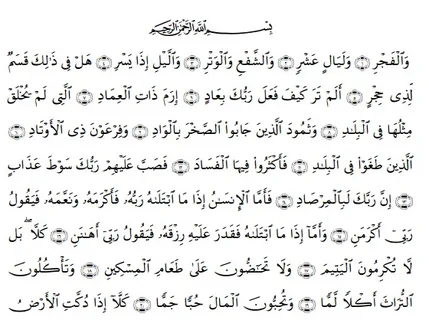 بِسْمِ اللَّهِ الرَّحْمَٰنِ الرَّحِيمِ
وَالْفَجْرِ ۝ وَلَيَالٍ عَشْرٍ ۝ وَالشَّفْعِ وَالْوَتْرِ ۝ وَاللَّيْلِ إِذَا يَسْرِ ۝ هَلْ فِي ذَٰلِكَ قَسَمٌ
لِّذِي حِجْرٍ ۝ أَلَمْ تَرَ كَيْفَ فَعَلَ رَبُّكَ بِعَادٍ ۝ إِرَمَ ذَاتِ الْعِمَادِ ۝ الَّتِي لَمْ يُخْلَقْ
مِثْلُهَا فِي الْبِلَادِ ۝ وَثَمُودَ الَّذِينَ جَابُوا الصَّخْرَ بِالْوَادِ ۝ وَفِرْعَوْنَ ذِي الْأَوْتَادِ ۝
الَّذِينَ طَغَوْا فِي الْبِلَادِ ۝ فَأَكْثَرُوا فِيهَا الْفَسَادَ ۝ فَصَبَّ عَلَيْهِمْ رَبُّكَ سَوْطَ عَذَابٍ
۝ إِنَّ رَبَّكَ لَبِالْمِرْصَادِ ۝ فَأَمَّا الْإِنسَانُ إِذَا مَا ابْتَلَاهُ رَبُّهُ فَأَكْرَمَهُ وَنَعَّمَهُ فَيَقُولُ
رَبِّي أَكْرَمَنِ ۝ وَأَمَّا إِذَا مَا ابْتَلَاهُ فَقَدَرَ عَلَيْهِ رِزْقَهُ فَيَقُولُ رَبِّي أَهَانَنِ ۝ كَلَّا ۖ بَل
لَّا تُكْرِمُونَ الْيَتِيمَ ۝ وَلَا تَحَاضُّونَ عَلَىٰ طَعَامِ الْمِسْكِينِ ۝ وَتَأْكُلُونَ
التُّرَاثَ أَكْلًا لَّمًّا ۝ وَتُحِبُّونَ الْمَالَ حُبًّا جَمًّا ۝ كَلَّا إِذَا دُكَّتِ الْأَرْضُ